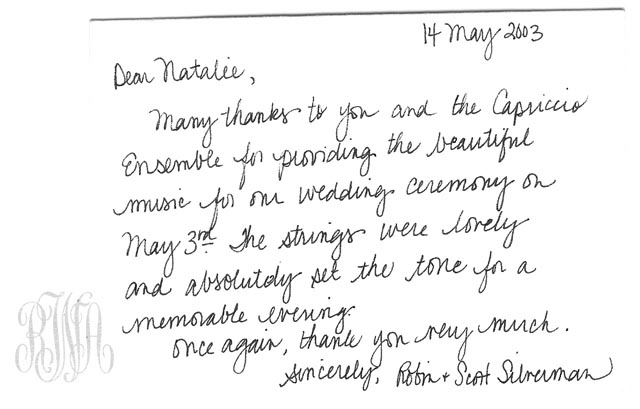 14 May 2003
Dear Natalie,
Many thanks to you and the Capriccio
Ensemble for providing the beautiful
music for our wedding ceremony on
May 3rd. The strings were lovely
and absolutely set the tone for a
memorable evening.
Once again, thank you very much.
Sincerely, Robin + Scott Silverman